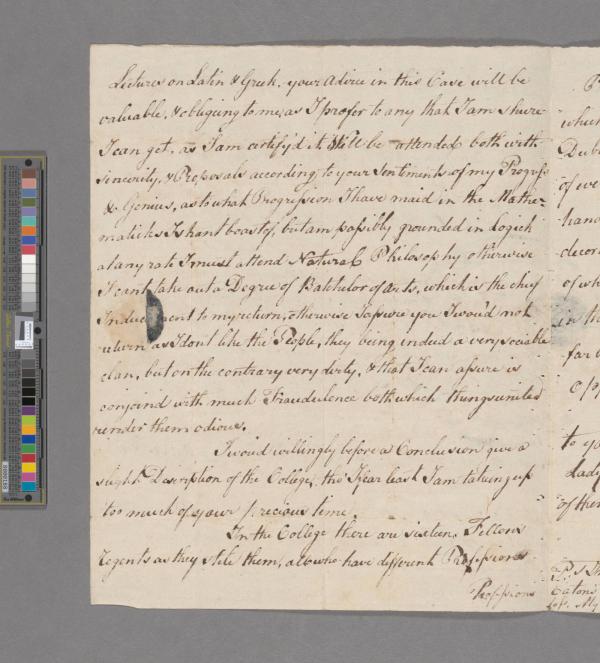 Lectures on Latin & Greek. your advice in this Case will be
valuable, & obliging to me, as I prefer to any that I am shure
I can get, as I am certify'd it Will be attended both with
sincerity, & Proposals according to your Sentiments of my Progress
& Genius, as to what Progression I have maid in the Mathe-
maticks I shant boast of, but am possibly grounded in Logick
at any rate I must attend Natural Philosophy otherwise
I cant take out a Degree of Batchulor of arts, which is the chief
Inducement to my return, otherwise I assure you I wou'd not
return as I dont like the People, they being indeed a very sociable
clan, but on the contrary very dirty, & that I can assure is
conjoind with much Fraudulence both which things united
render them odious.
I wou'd willingly before a Conclusion give a
slight Description of the College, tho' I fear least I am taking up
too much of your precious time.
In the College there are sixteen Fellows
Regents as they stile them, also who have different Professions
Professions
whic
Dub
of we
hand
decor
of wh
in th
far
opp
to yo
Lady
of the
P.S
Eatons
My